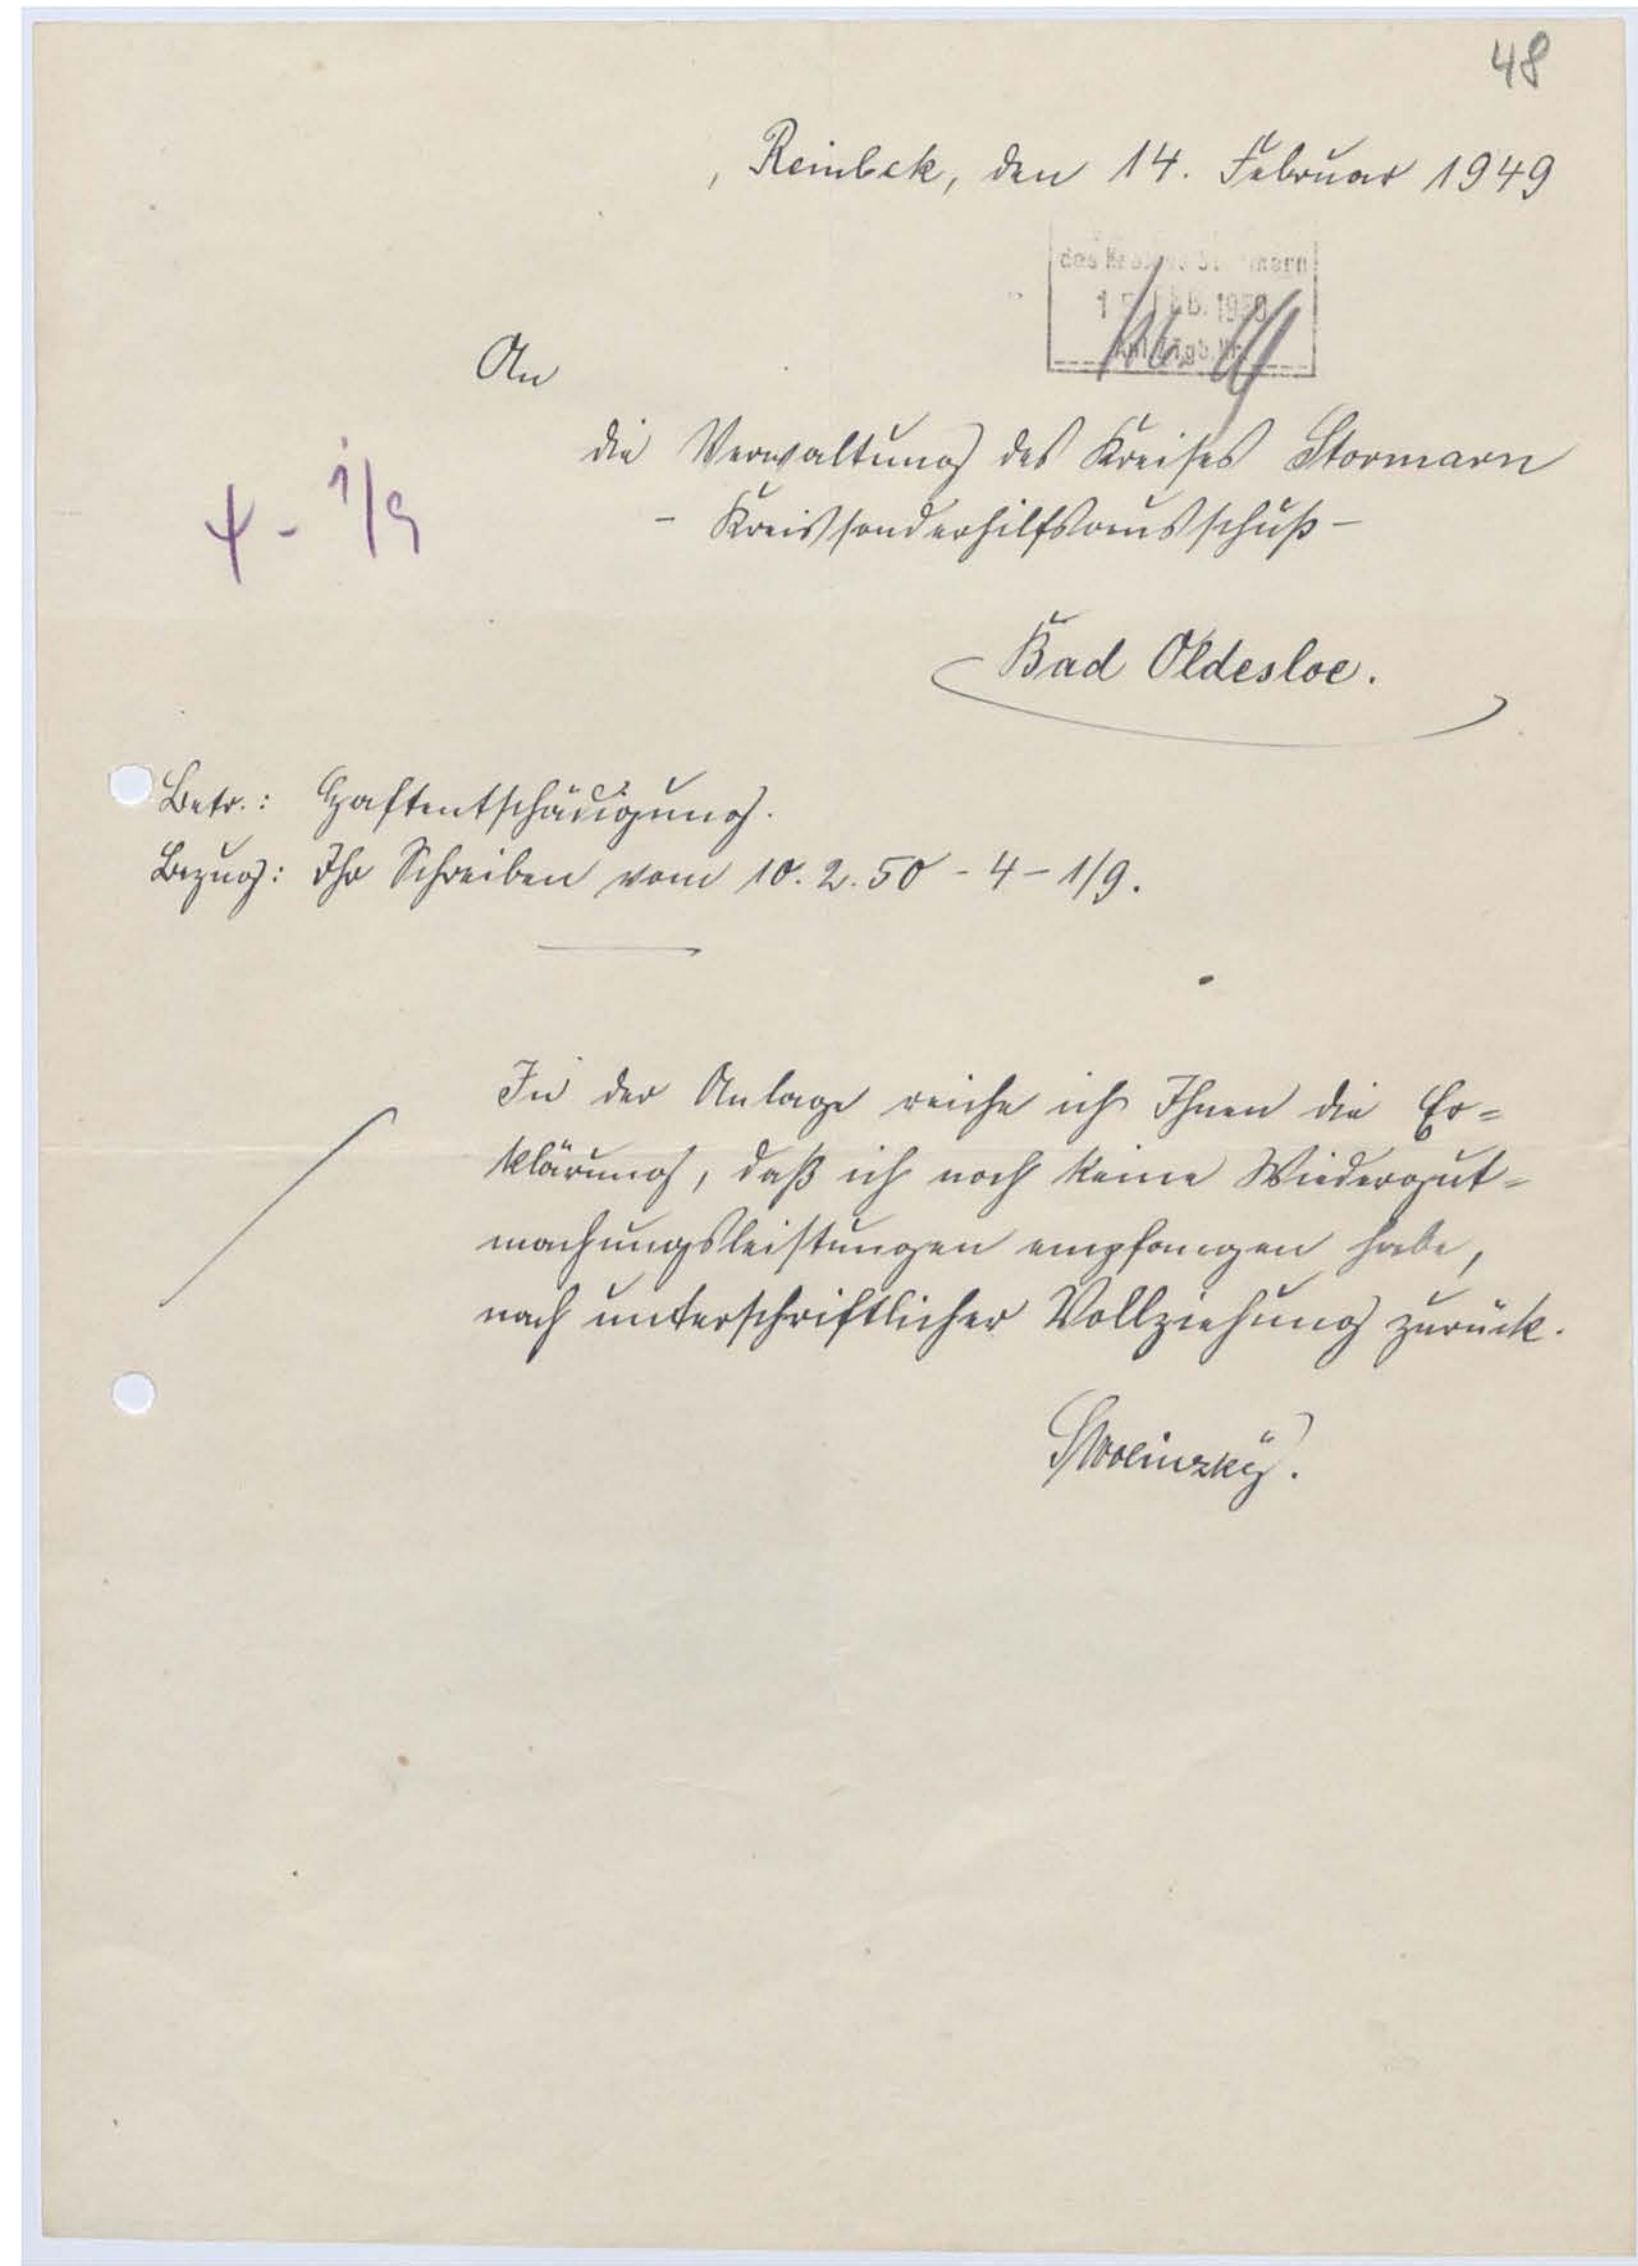 48
Reinbek, den 14. Februar 1949
des Kreises Stormarn
FEB. 1950
An
die Verwaltung des Kreises Stormarn
- Kreissonderhilfsausschuß -
4 - 1/9
Bad Oldesloe.
Betr.: Haftentschädigung.
Bezug: Ihr Schreiben vom 10. 2. 50 - 4 - 1/9.
In der Anlage reiche ich Ihnen die Er=
klärung, daß ich noch keine Wiedergut=
machungsleistungen empfangen habe,
nach unterschriftlicher Vollziehung zurück.